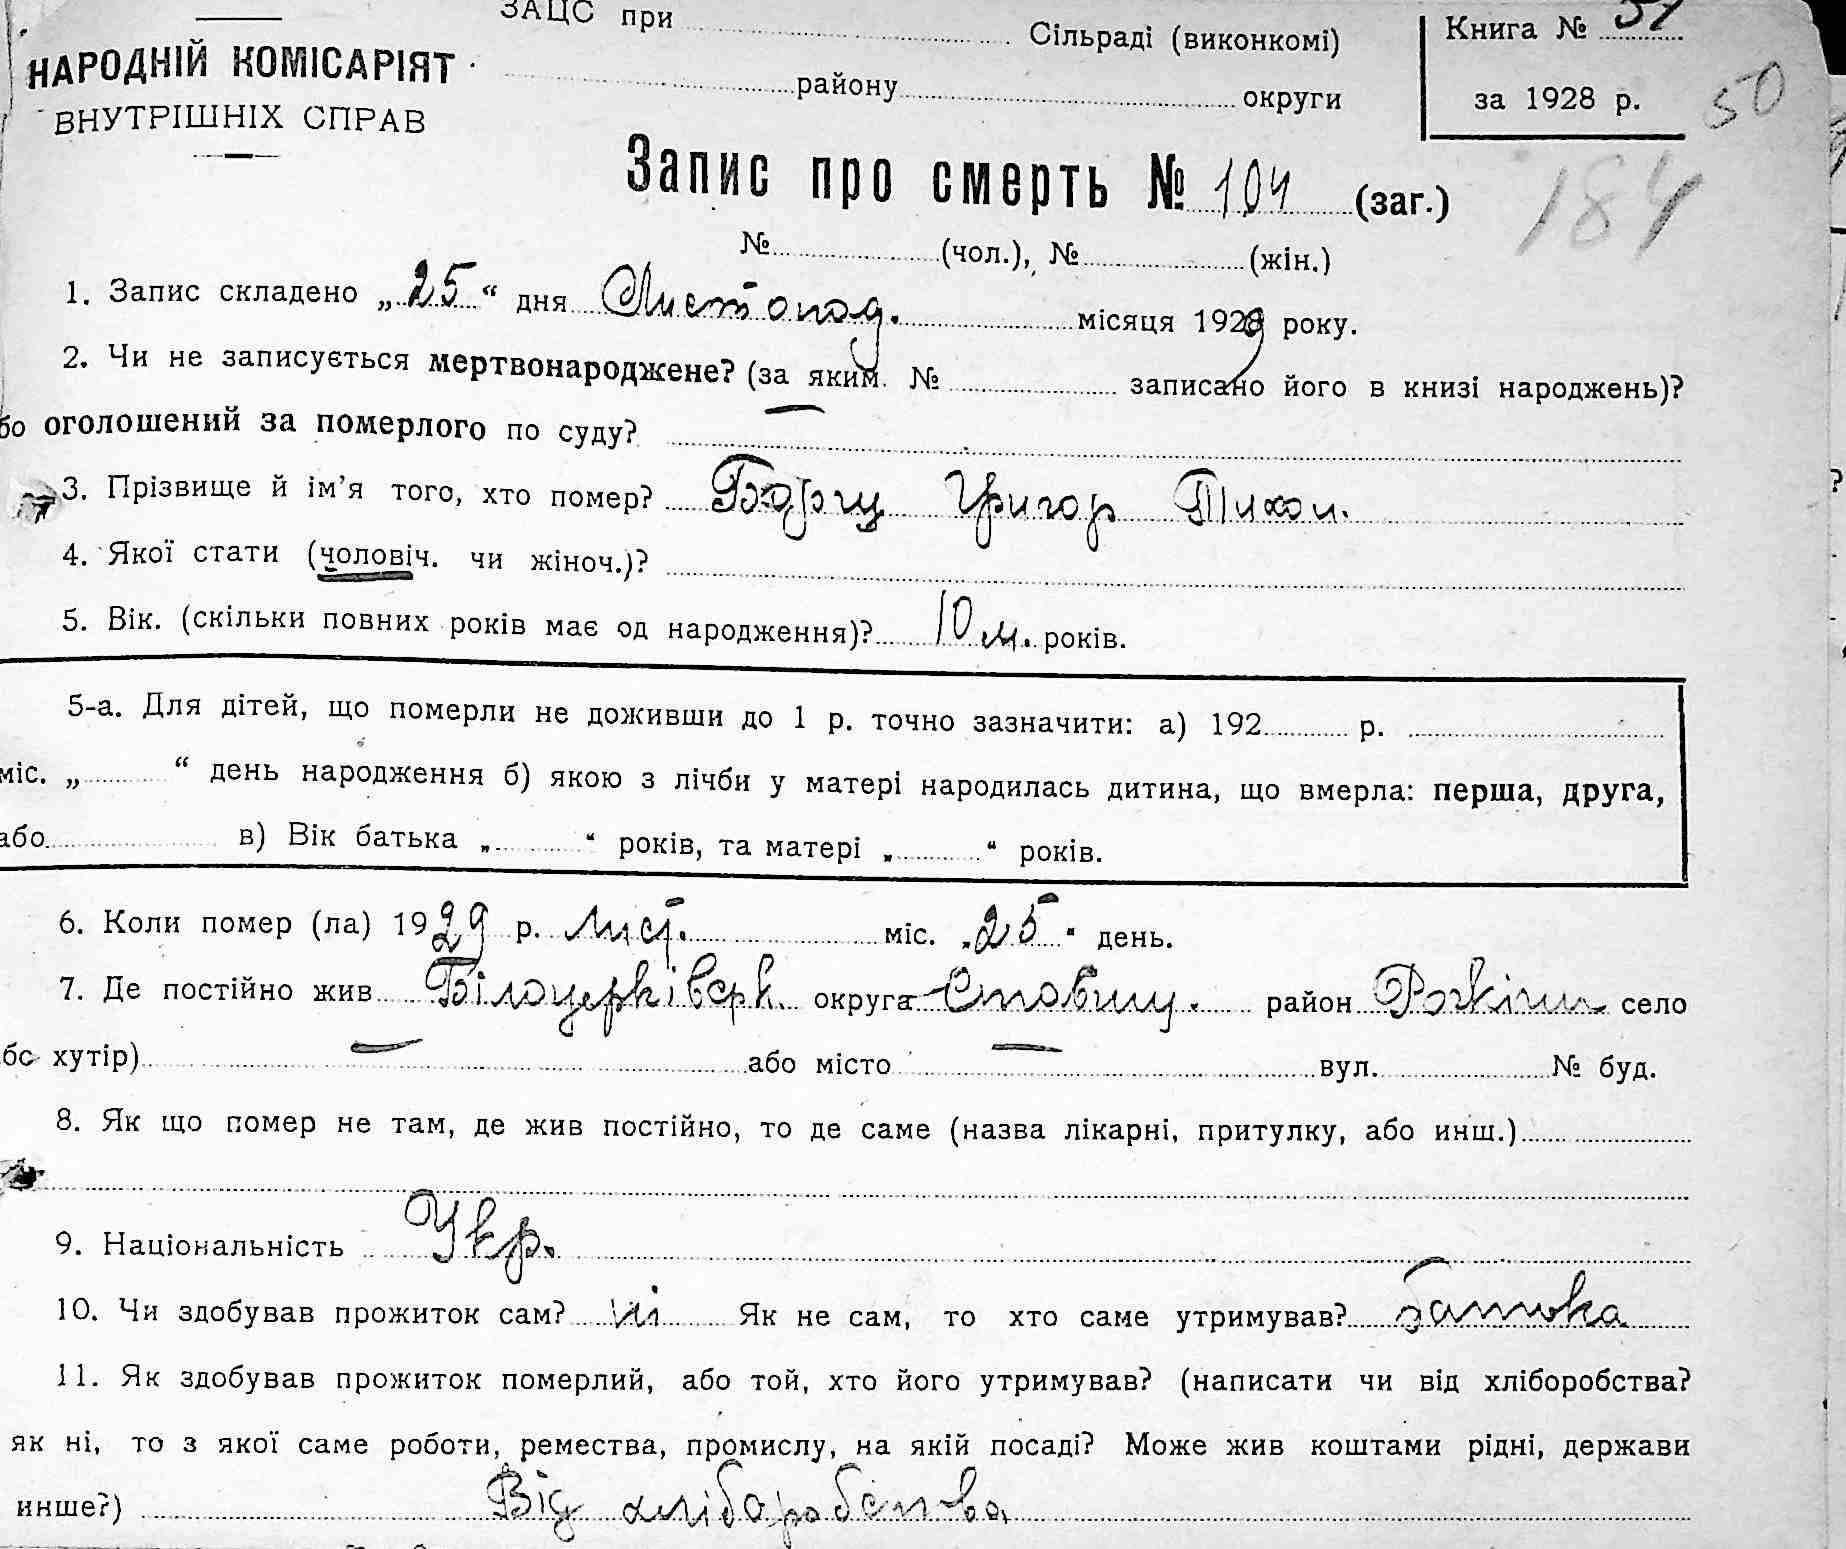 ЗАЦС при Сільраді (виконкомі)
НАРОДНІЙ КОМІСАРІЯТ
ВНУТРІШНІХ СПРАВ
району округи
Книга № 51
за 1928 р.
50
Запис про смерть № 104 (заг.)
184
№ (чол.), № (жін.)
1. Запис складено „25“ дня Листопад. місяця 1929 року.
2. Чи не записується мертвонароджене? (за яким № записано його в книзі народжень)?
бо оголошений за померлого по суду? —
3. Прізвище й ім’я того, хто помер? Григор Тихон.
4. Якої стати (чоловіч. чи жіноч.)?
5. Вік. (скільки повних років має од народження)? 10 м. років.
5-а. Для дітей, що померли не доживши до 1 р. точно зазначити: а) 192 р.
міс. „ “ день народження б) якою з лічби у матері народилась дитина, що вмерла: перша, друга,
або в) Вік батька „ “ років, та матері „ “ років.
6. Коли помер (ла) 1929 р. лист. міс. „25“ день.
7. Де постійно жив Білоцерківськ. округа Ставищ. район село
бо хутір) — або місто — вул. № буд.
8. Як що помер не там, де жив постійно, то де саме (назва лікарні, притулку, або инш.)
9. Національність Укр.
10. Чи здобував прожиток сам? ні Як не сам, то хто саме утримував? батька
11. Як здобував прожиток померлий, або той, хто його утримував? (написати чи від хліборобства?
як ні, то з якої саме роботи, ремества, промислу, на якій посаді? Може жив коштами рідні, держави
инше?) Від хліборобства